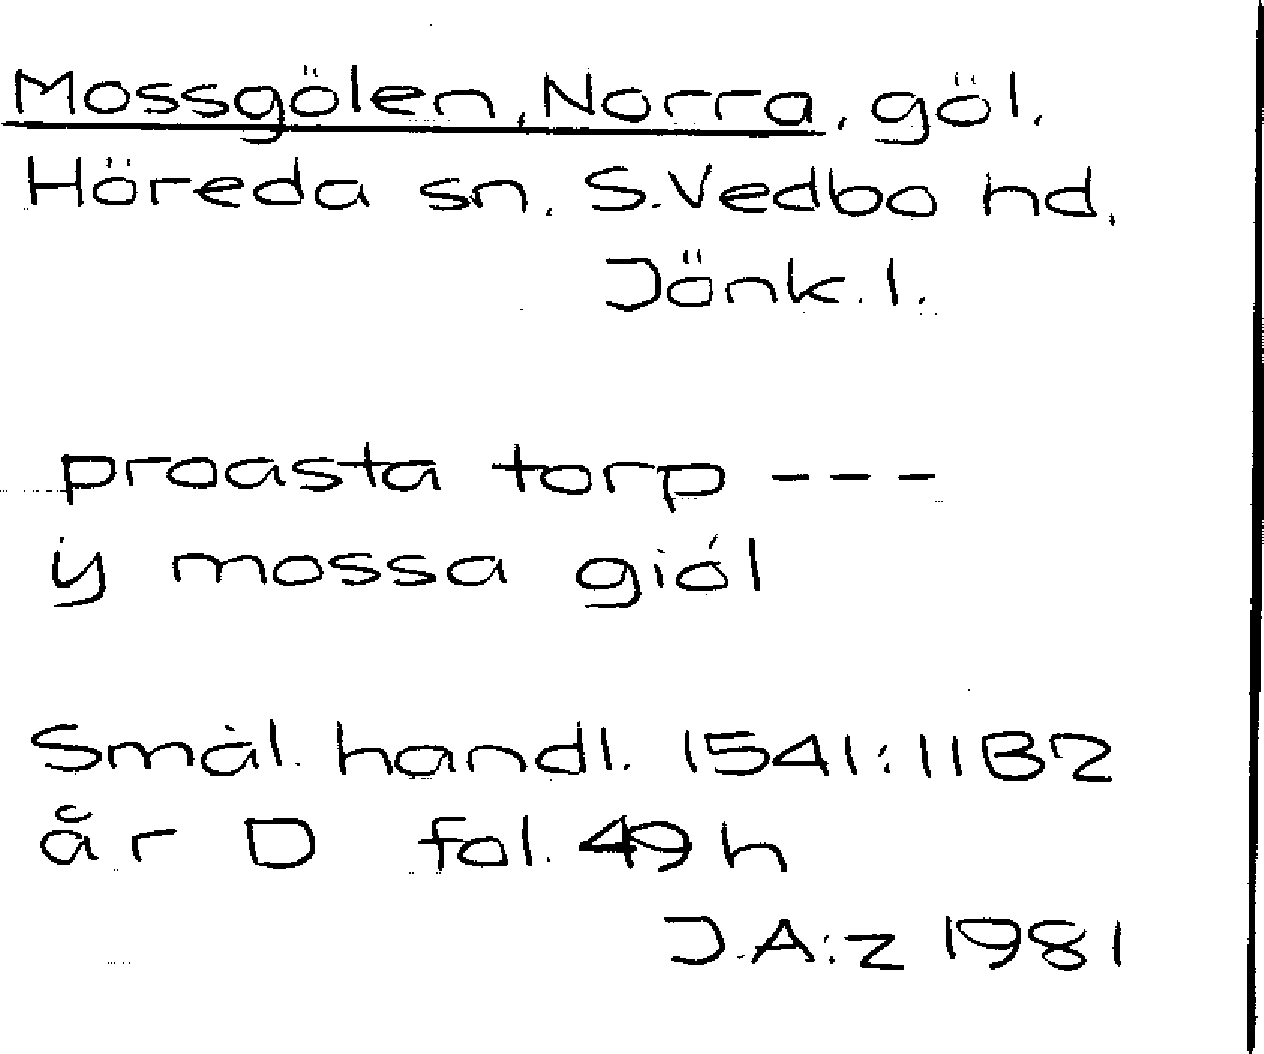 Mossgölen, Norra, göl.
Höreda sn. S.Vedbo hd.
Jönk.l.
proasta torp - - -
ij mossa giól
Smål. handl. 1541:11B2
år D fol. 49 h
J.A:z 1981